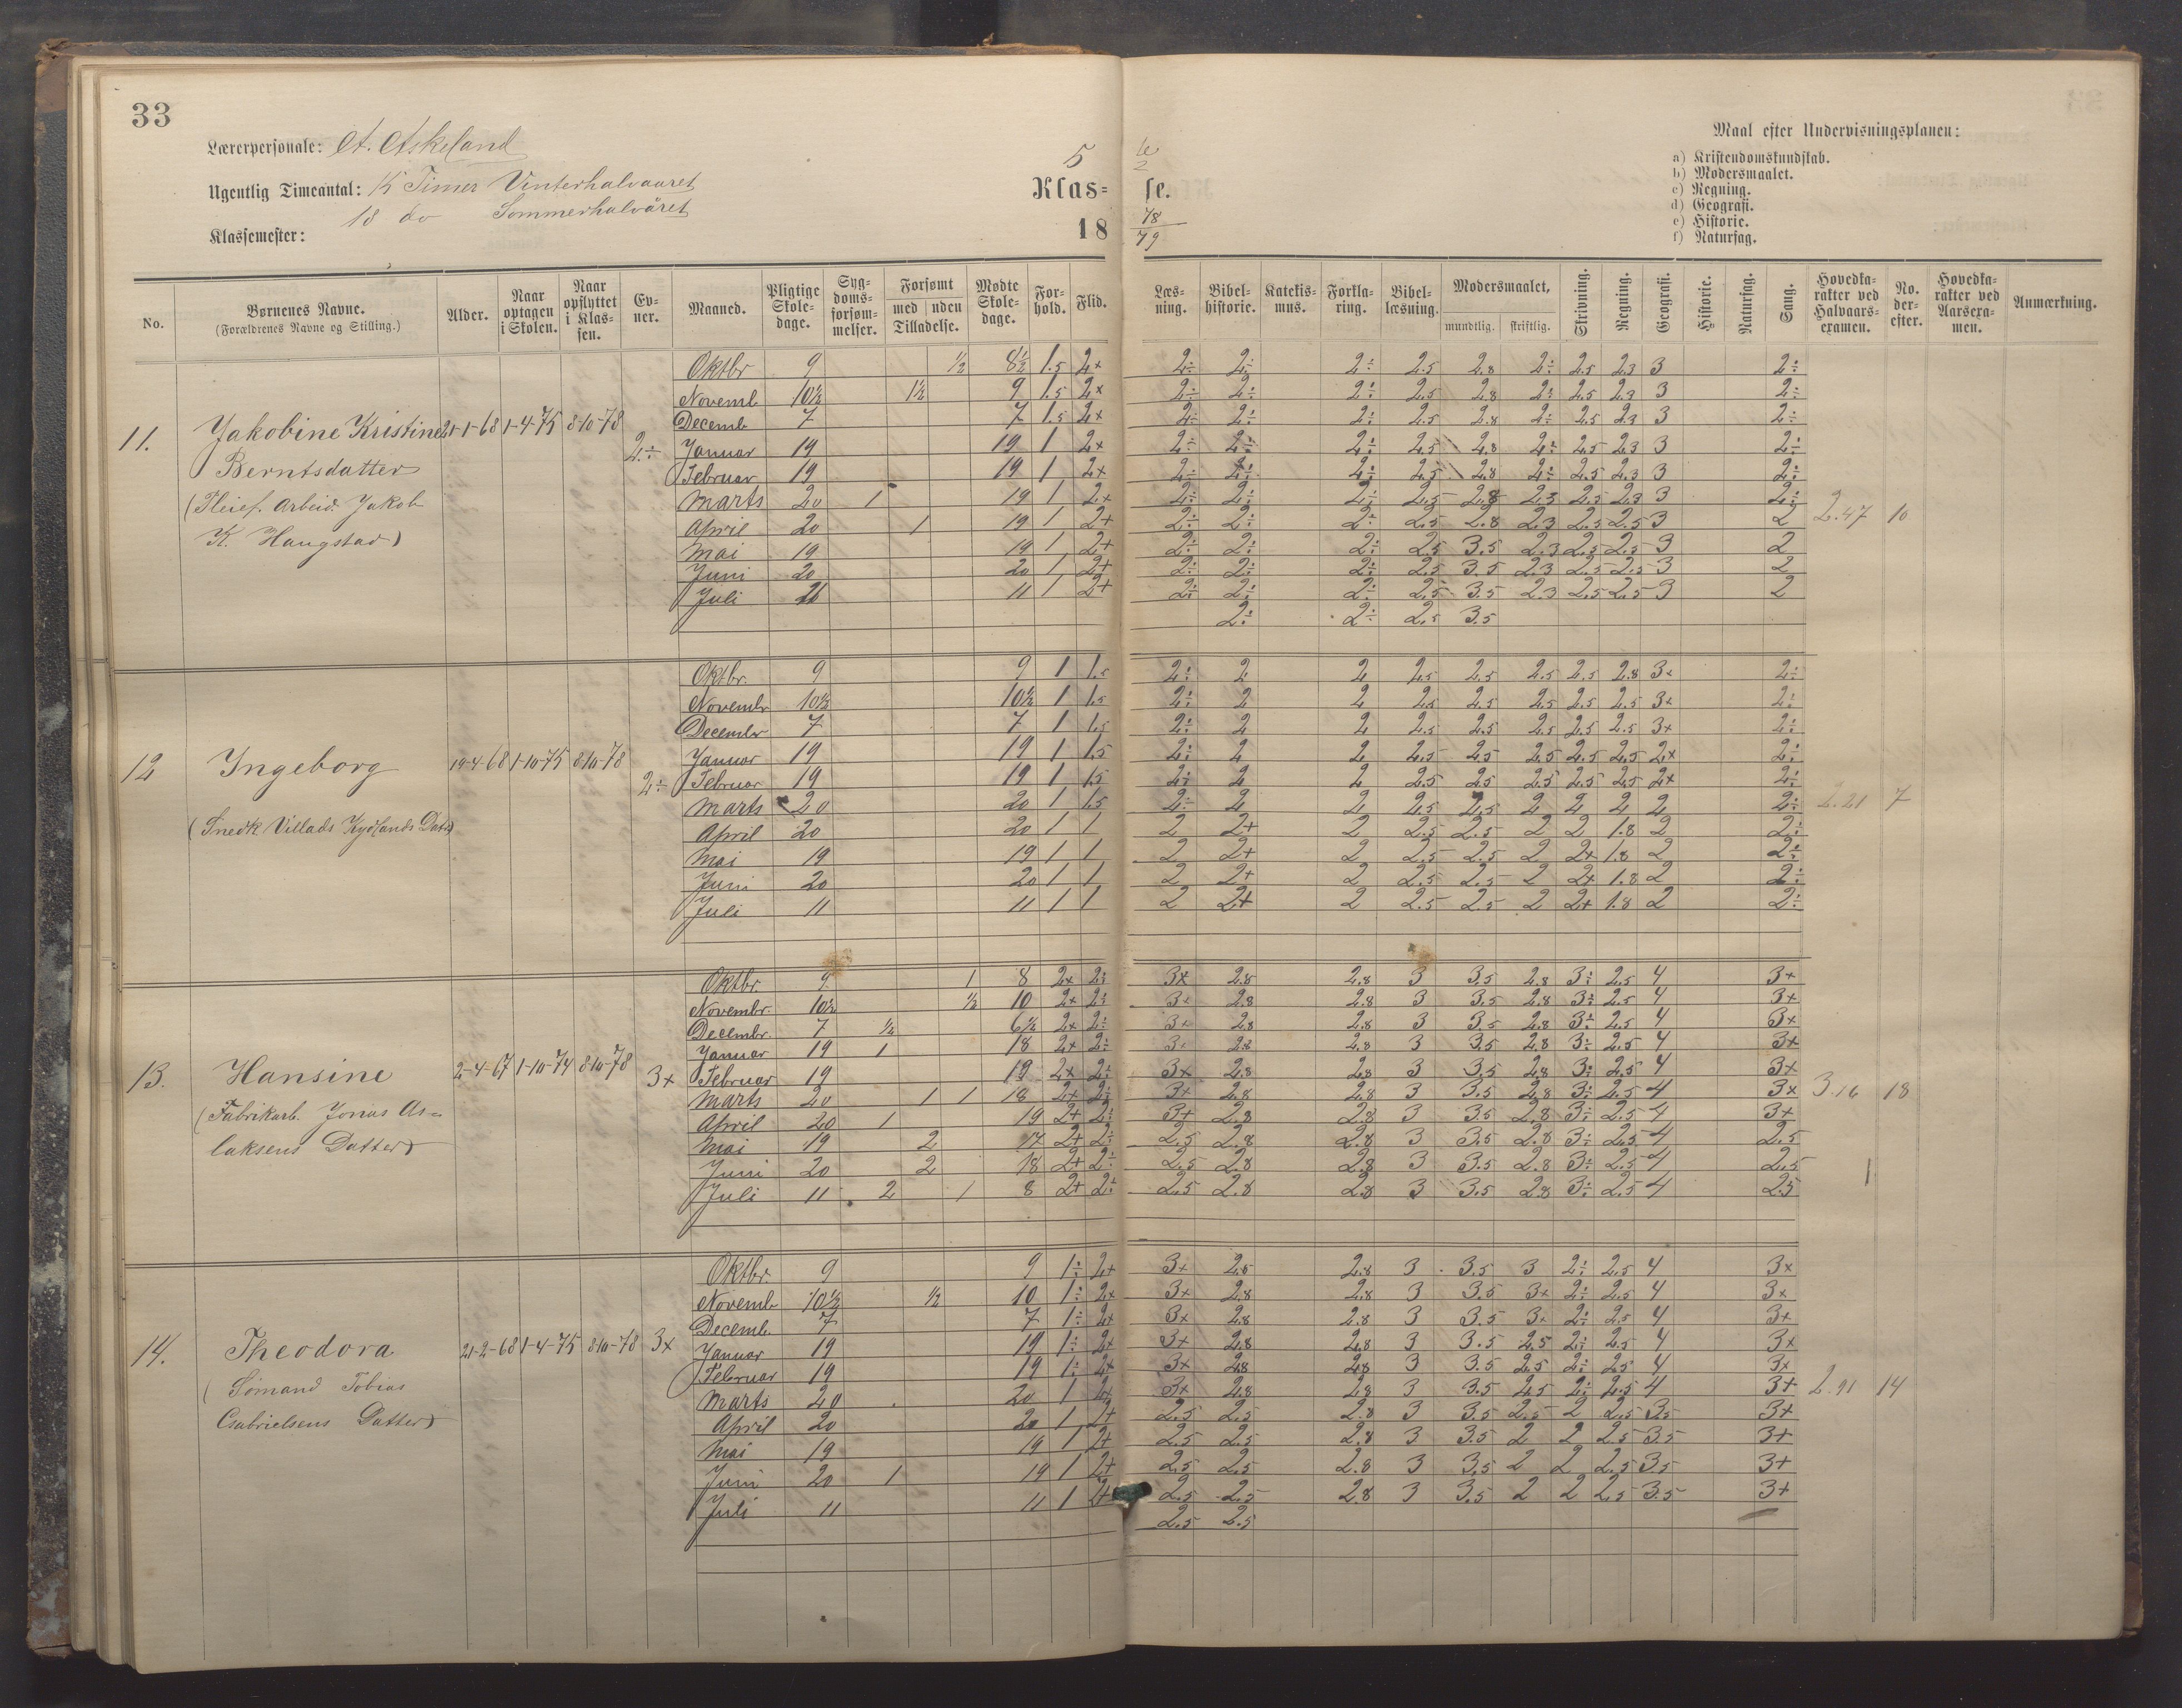 33
Lærerpersonale: A. Askeland
Ugentlig Timeantal: 15 Timer Vinterhalvaaret
18 do Sommerhalvåret
Klassemester:
5 te
2
Klas= se.
18 78
79
Maal efter Undervisningsplanen:
a) Kristendomskundskab.
b) Modersmaalet.
c) Regning.
d) Geografi.
e) Historie.
f) Naturfag.
No. Børnenes Navne. (Forældrenes Navne og Stilling.) Alder. Naar optagen i Skolen. Naar opflyttet i Klassen. Evner. Maaned. Pligtige Skoledage. Sygdomsforsømmelser. Forsømt med uden Tilladelse. Mødte Skoledage. Forhold. Flid. Læsning. Bibelhistorie. Katekismus. Forklaring. Bibellæsning. Modersmaalet, mundtlig. skriftlig. Skrivning. Regning. Geografi. Historie. Naturfag. Sang. Hovedkarakter ved Halvaarsexamen. No. derefter. Hovedkarakter ved Aarsexamen. Anmærkning.
11. Jakobine Kristine 21-1-68 1-4-75 8-10-78 2÷
Berntsdatter
(Pleief. Arbeid. Jakob
K. Haugstad)
Oktbr 9 ½ 8½ 1.5 2+ 2÷ 2÷ 2÷ 2.5 2.8 2÷ 2.5 2.3 3 2÷
Novemb 10½ 1½ 9 1.5 2+ 2÷ 2÷ 2÷ 2.5 2.8 2÷ 2.5 2.3 3 2÷
Decemb 7 7 1.5 2+ 2÷ 2÷ 2÷ 2.5 2.8 2÷ 2.5 2.3 3 2÷
Januar 19 19 1 2+ 2÷ 2÷ 2÷ 2.5 2.8 2÷ 2.5 2.3 3 2÷
Februar 19 19 1 2+ 2÷ 2÷ 2÷ 2.5 2.8 2÷ 2.5 2.3 3 2÷
Marts 20 1 19 1 2+ 2÷ 2÷ 2÷ 2.5 2.8 2.3 2.5 2.3 3 2÷ 2.47 10
April 20 1 19 1 2+ 2÷ 2÷ 2÷ 2.5 2.8 2.3 2.5 2.5 3 2
Mai 19 19 1 2+ 2÷ 2÷ 2÷ 2.5 3.5 2.3 2.5 2.5 3 2
Juni 20 20 1 2+ 2÷ 2÷ 2÷ 2.5 3.5 2.3 2.5 2.5 3 2
Juli 11 1 2+ 2÷ 2÷ 2÷ 2.5 3.5 2.3 2.5 2.5 3 2
2÷ 2÷ 2.5 3.5
12 Ingeborg 19-4-68 1-10-75 8-10-78 2÷
(Snedk. Villads Kydlands Datt)
Oktbr. 9 9 1 1.5 2÷ 2 2 2.5 2.5 2.5 2.5 2.8 3+ 2÷
Novembr 10½ 10½ 1 1.5 2÷ 2 2 2.5 2.5 2.5 2.5 2.5 3+ 2÷
Decembr 7 7 1 1.5 2÷ 2 2 2.5 2.5 2.5 2.5 2.5 3+ 2÷
Januar 19 19 1 1.5 2÷ 2 2 2.5 2.5 2.5 2.5 2.5 2+ 2÷
Februar 19 19 1 1.5 2÷ 2 2 2.5 2.5 2.5 2.5 2.5 2+ 2÷
Marts 20 20 1 1.5 2÷ 2 2 2.5 2.5 2 2 2 2 2÷ 2.21 7
April 20 20 1 1 2 2+ 2 2.5 2.5 2 2 1.8 2 2÷
Mai 19 19 1 1 2 2+ 2 2.5 2.5 2 2+ 1.8 2 2÷
Juni 20 20 1 1 2 2+ 2 2.5 2.5 2 2+ 1.8 2 2÷
Juli 11 11 1 1 2 2+ 2 2.5 2.5 2 2+ 1.8 2 2÷
13. Hansine 2-4-67 1-10-74 8-10-78 3+
(Fabrikarb. Jonas As-
laksens Datter)
Oktbr. 9 1 8 2+ 2÷ 3+ 2.8 2.8 3 3.5 2.8 3÷ 2.5 4 3+
Novembr. 10½ ½ 10 2+ 2÷ 3+ 2.8 2.8 3 3.5 2.8 3÷ 2.5 4 3+
Decembr. 7 2+ 2÷ 3+ 2.8 2.8 3 3.5 2.8 3÷ 2.5 4 3+
Januar 19 1 18 2+ 2÷ 3+ 2.8 2.8 3 3.5 2.8 3÷ 2.5 4 3+
Februar 19 19 2+ 2÷ 3+ 2.8 2.8 3 3.5 2.8 3÷ 2.5 4 3+
Marts 20 1 1 18 2+ 2÷ 3+ 2.8 2.8 3 3.5 2.8 3÷ 2.5 4 3+ 3.16 18
April 20 1 19 2+ 2÷ 3+ 2.8 2.8 3 3.5 2.8 3÷ 2.5 4 3+
Mai 19 2 17 2+ 2÷ 2.5 2.8 2.8 3 3.5 2.8 3÷ 2.5 4 2.5
Juni 20 2 18 2+ 2÷ 2.5 2.8 2.8 3 3.5 2.8 3÷ 2.5 4 2.5
Juli 11 2 1 8 2+ 2÷ 2.5 2.8 2.8 3 3.5 2.8 3÷ 2.5 4 2.5
14. Theodora 21-2-68 1-4-75 8-10-78 3+
(Sømand Tobias
Gabrielsens Datter)
Oktbr. 9 9 1÷ 2+ 3+ 2.8 2.8 3 3.5 3 2÷ 2.5 4 3+
Novemb 10½ ½ 10 1÷ 2+ 3+ 2.8 2.8 3 3.5 3+ 2÷ 2.5 4 3+
Decemb. 7 7 1÷ 2+ 3+ 2.8 2.8 3 3.5 3+ 2÷ 2.5 4 3+
Januar 19 19 1÷ 2+ 3+ 2.8 2.8 3 3.5 2.5 2÷ 2.5 4 3+
Februar 19 19 1÷ 2+ 3+ 2.8 2.8 3 3.5 2.5 2÷ 2.5 4 3+
Marts 20 20 1 2+ 3+ 2.8 2.8 3 3.5 2.5 2÷ 2.5 4 3+ 2.91 14
April 20 20 1 2+ 2.5 2.5 2.8 3 3.5 2.5 2 2.5 3.5 3+
Mai 19 19 1 2+ 2.5 2.5 2.8 3 3.5 2 2 2.5 3.5 3+
Juni 20 1 19 1 2+ 2.5 2.5 2.8 3 3.5 2 2 2.5 3.5 3+
Juli 11 11 1 2+ 2.5 2.5 2.8 3 3.5 2 2 2.5 3.5 3+
2.5 2.5